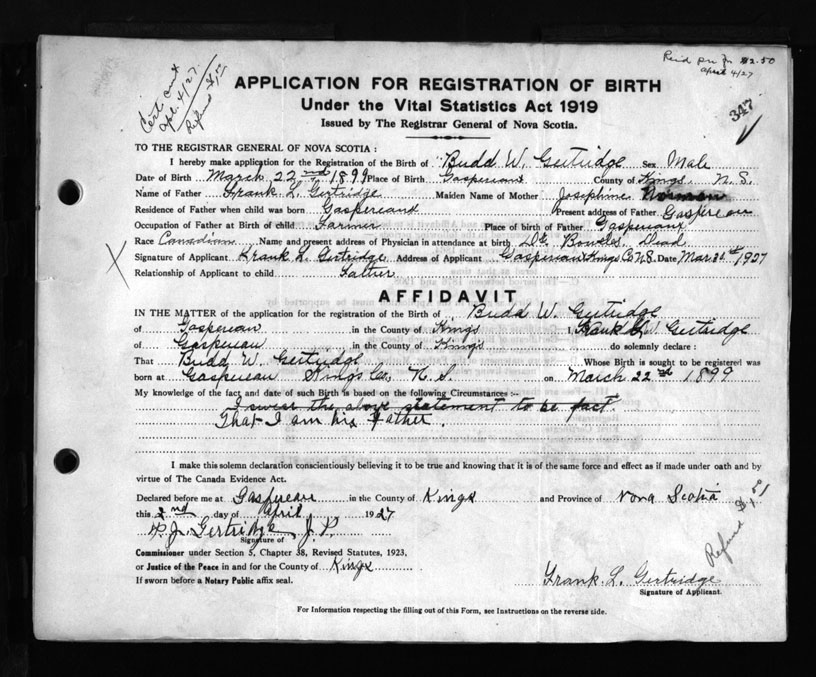 Cert. sent
Apl. 4/27.
Refund $1.50
Reid pn for $2.50
April 4/27
347
APPLICATION FOR REGISTRATION OF BIRTH
Under the Vital Statistics Act 1919
Issued by The Registrar General of Nova Scotia.
TO THE REGISTRAR GENERAL OF NOVA SCOTIA :
I hereby make application for the Registration of the Birth of Budd W. Gertridge Sex Male
Date of Birth March 22nd 1899 Place of Birth Gaspereaux County of Kings, N. S.
Name of Father Frank L. Gertridge Maiden Name of Mother Josephine
Residence of Father when child was born Gaspereaux Present address of Father Gaspereau
Occupation of Father at Birth of child Farmer Place of birth of Father Gaspereaux
Race Canadian Name and present address of Physician in attendance at birth Dr. Bowles Dead
Signature of Applicant Frank L. Gertridge Address of Applicant Gaspereau Kings Co N.S. Date Mar. 31st 1927
Relationship of Applicant to child Father
AFFIDAVIT
IN THE MATTER of the application for the registration of the Birth of Budd W. Gertridge
of Gaspereau in the County of Kings I, Frank L. Gertridge
of Gaspereau in the County of Kings do solemnly declare :
That Budd W. Gertridge Whose Birth is sought to be registered was
born at Gaspereau Kings Co, N. S. on March 22nd 1899
My knowledge of the fact and date of such Birth is based on the following Circumstances :-
I swear the above statement to be fact.
That I am his Father.
I make this solemn declaration conscientiously believing it to be true and knowing that it is of the same force and effect as if made under oath and by
virtue of The Canada Evidence Act.
Declared before me at Gaspereau in the County of Kings and Province of Nova Scotia
this 2nd day of April 1927
Gertridge J. P.
Signature of
Commissioner under Section 5, Chapter 38, Revised Statutes, 1923,
or Justice of the Peace in and for the County of Kings
If sworn before a Notary Public affix seal.
Refund $1.50
Frank. L. Gertridge
Signature of Applicant.
For Information respecting the filling out of this Form, see Instructions on the reverse side.